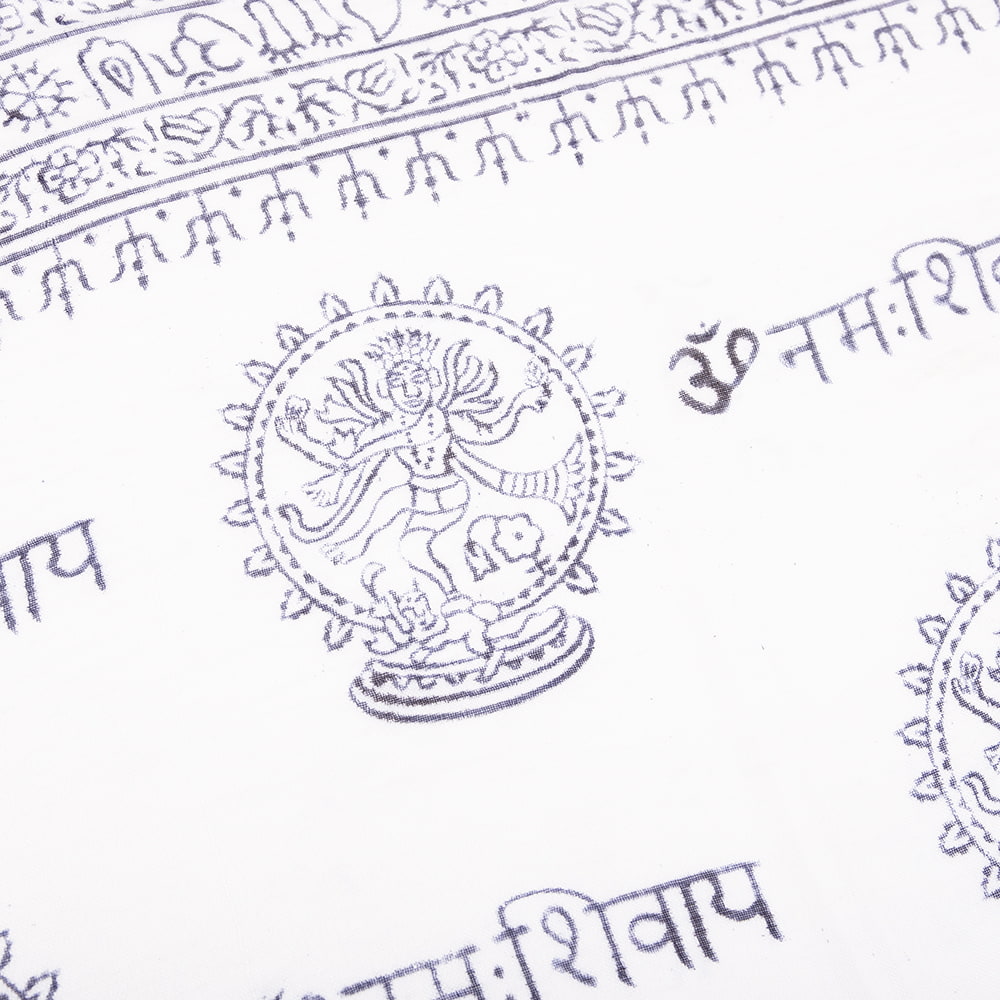 ॐ नमः शि
वाय
नमः शिवाय